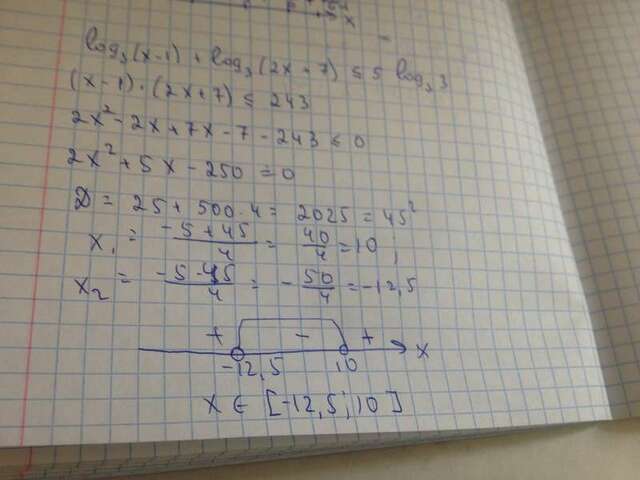 log₃(x-1) + log₃(2x+7) ≤ 5 log₃3
(x-1)·(2x+7) ≤ 243
2x²-2x+7x-7-243 ≤ 0
2x²+5x-250 = 0
D = 25+500·4 = 2025 = 45²
x₁ = (-5+45)/4 = 40/4 = 10;
x₂ = (-5-45)/4 = -50/4 = -12,5
+ - +
-12,5 10 x
x ∈ [-12,5; 10]